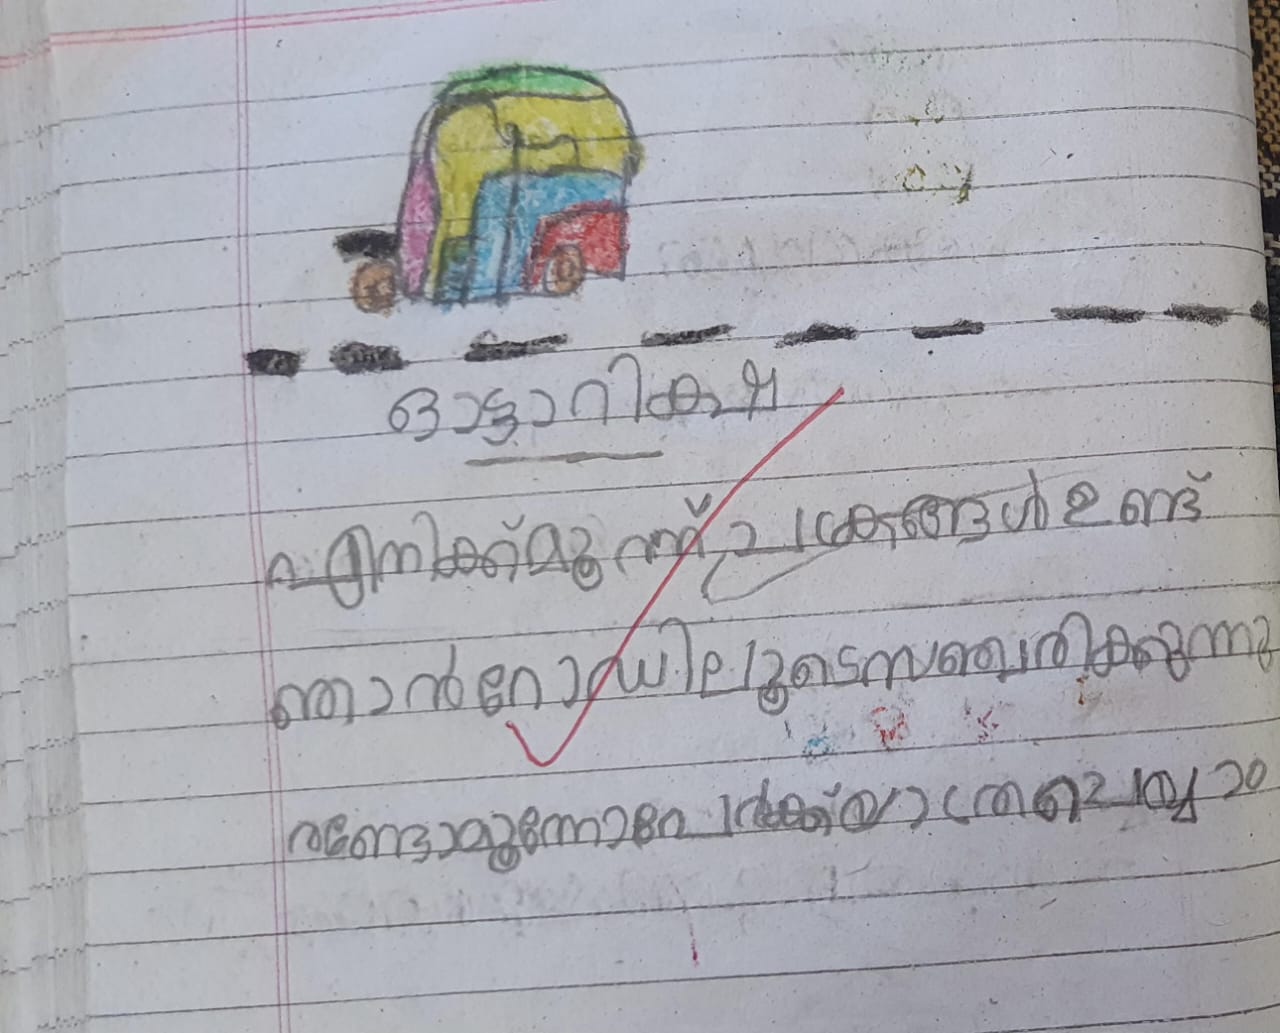 ഓട്ടോറിക്ഷ
എനിക്ക് മൂന്ന് ചക്രങ്ങൾ ഉണ്ട്
ഞാൻ റോഡിലൂടെ സഞ്ചരിക്കുന്നു
രണ്ടോ മൂന്നോ പേർക്ക് യാത്ര ചെയ്യാം